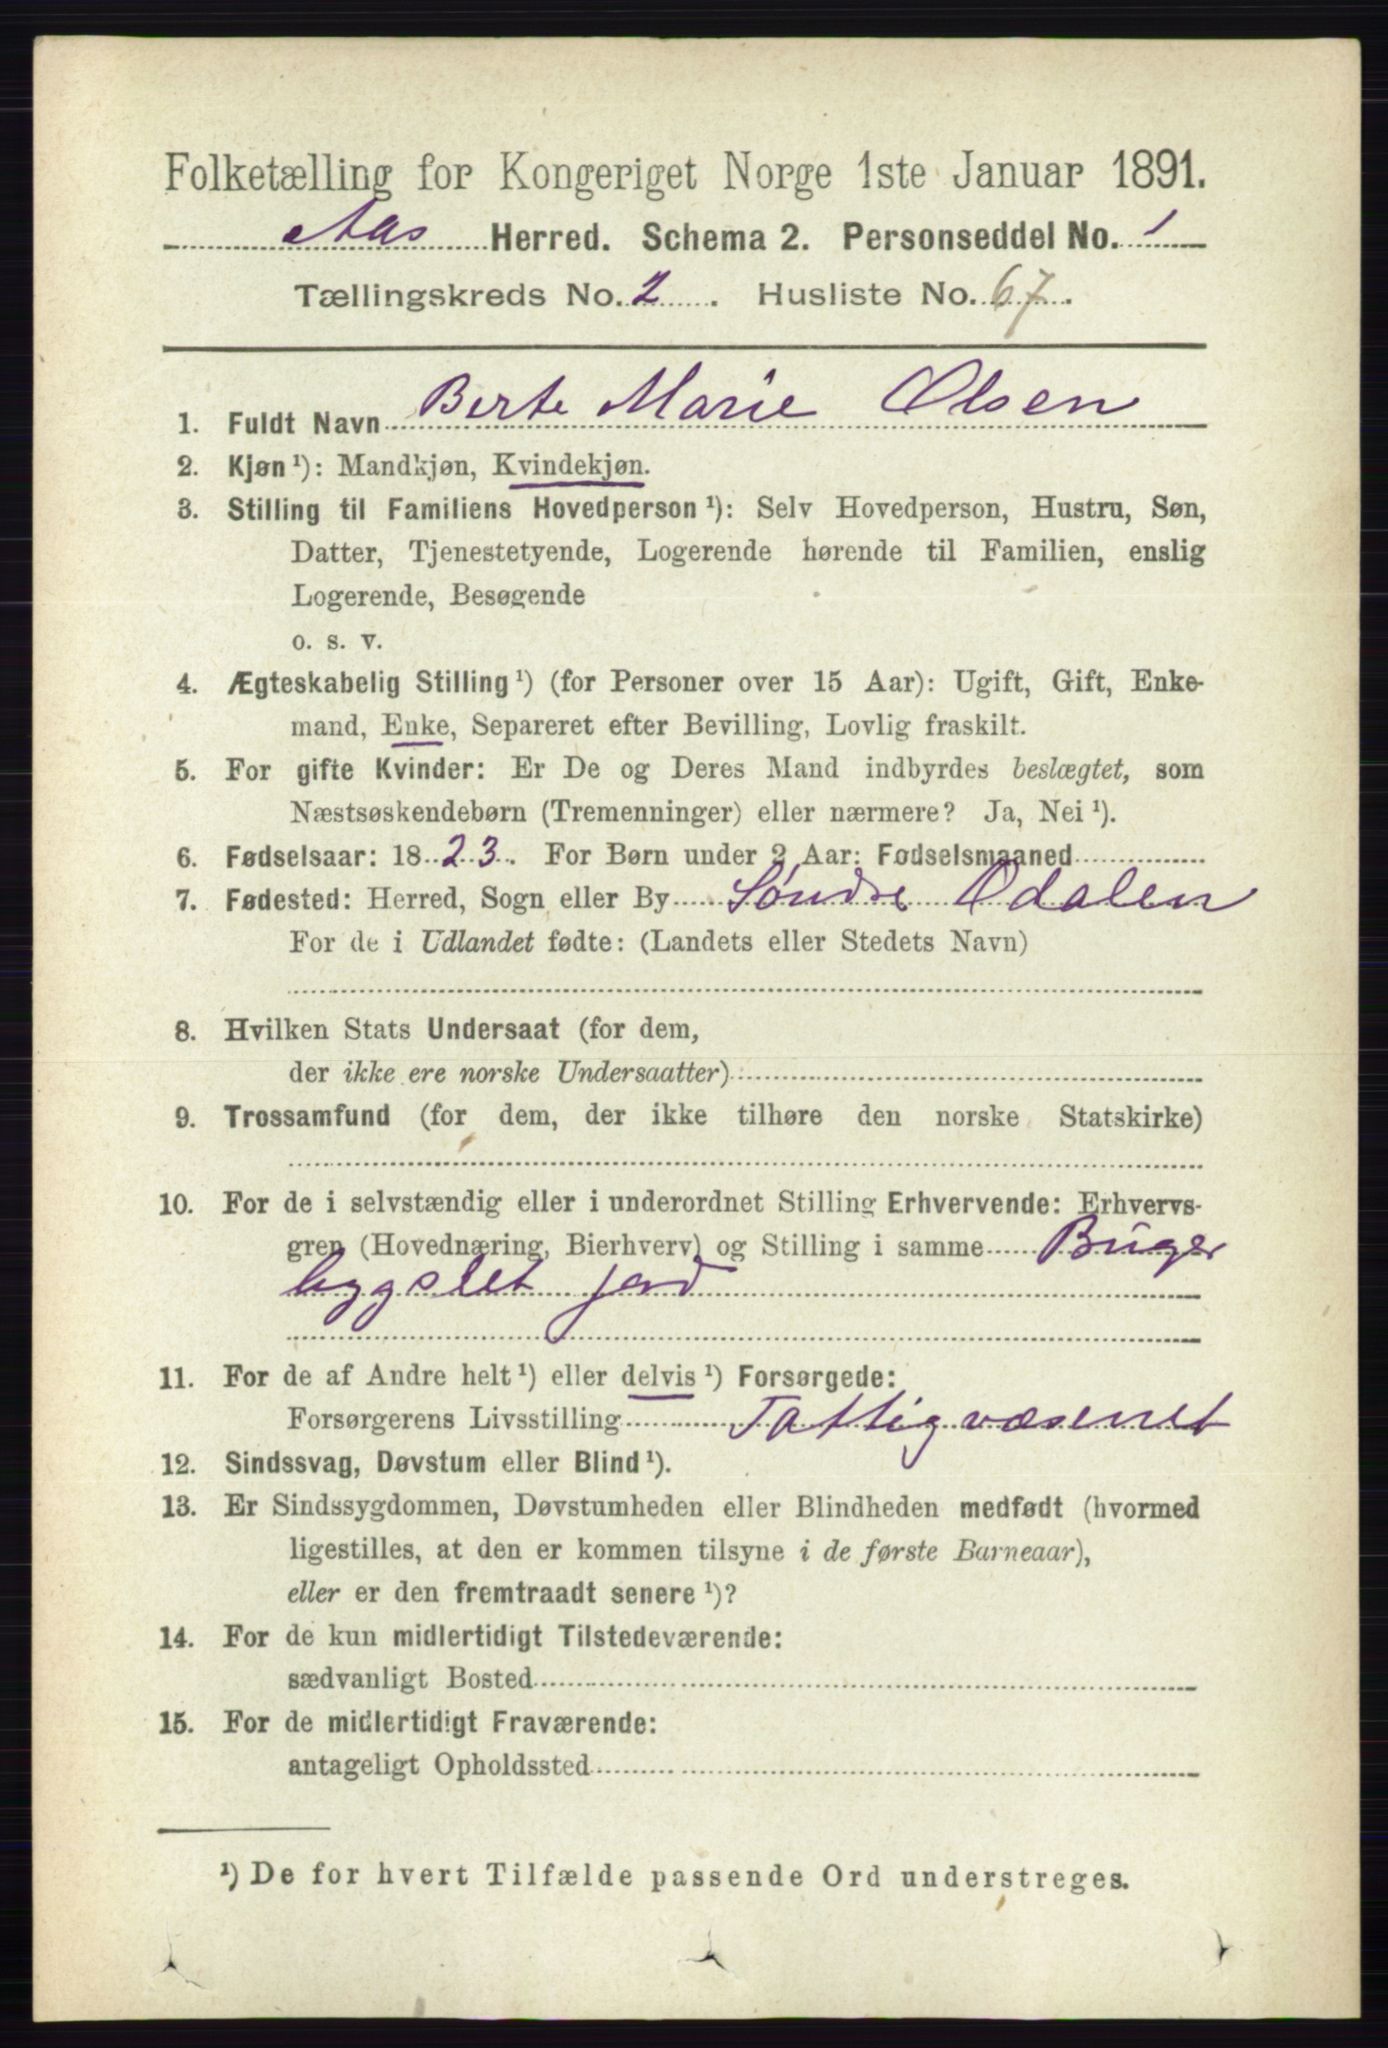 Folketælling for Kongeriget Norge 1ste Januar 1891.
Aas Herred. Schema 2. Personseddel No. 1
Tællingskreds No. 2. Husliste No. 67.
1. Fuldt Navn Berte Marie Olsen
2. Kjøn ¹): Mandkjøn, Kvindekjøn.
3. Stilling til Familiens Hovedperson ¹): Selv Hovedperson, Hustru, Søn,
Datter, Tjenestetyende, Logerende hørende til Familien, enslig
Logerende, Besøgende
o. s. v.
4. Ægteskabelig Stilling ¹) (for Personer over 15 Aar): Ugift, Gift, Enke-
mand, Enke, Separeret efter Bevilling, Lovlig fraskilt.
5. For gifte Kvinder: Er De og Deres Mand indbyrdes beslægtet, som
Næstsøskendebørn (Tremenninger) eller nærmere? Ja, Nei ¹).
6. Fødselsaar: 1823. For Børn under 2 Aar: Fødselsmaaned
7. Fødested: Herred, Sogn eller By Søndre Odalen
For de i Udlandet fødte: (Landets eller Stedets Navn)
8. Hvilken Stats Undersaat (for dem,
der ikke ere norske Undersaatter)
9. Trossamfund (for dem, der ikke tilhøre den norske Statskirke)
10. For de i selvstændig eller i underordnet Stilling Erhvervende: Erhvervs-
gren (Hovednæring, Bierhverv) og Stilling i samme Bruger
bygslet jord
11. For de af Andre helt ¹) eller delvis ¹) Forsørgede:
Forsørgerens Livsstilling Fattigvæsenet
12. Sindssvag, Døvstum eller Blind ¹).
13. Er Sindssygdommen, Døvstumheden eller Blindheden medfødt (hvormed
ligestilles, at den er kommen tilsyne i de første Barneaar),
eller er den fremtraadt senere ¹)?
14. For de kun midlertidigt Tilstedeværende:
sædvanligt Bosted
15. For de midlertidigt Fraværende:
antageligt Opholdssted
¹) De for hvert Tilfælde passende Ord understreges.